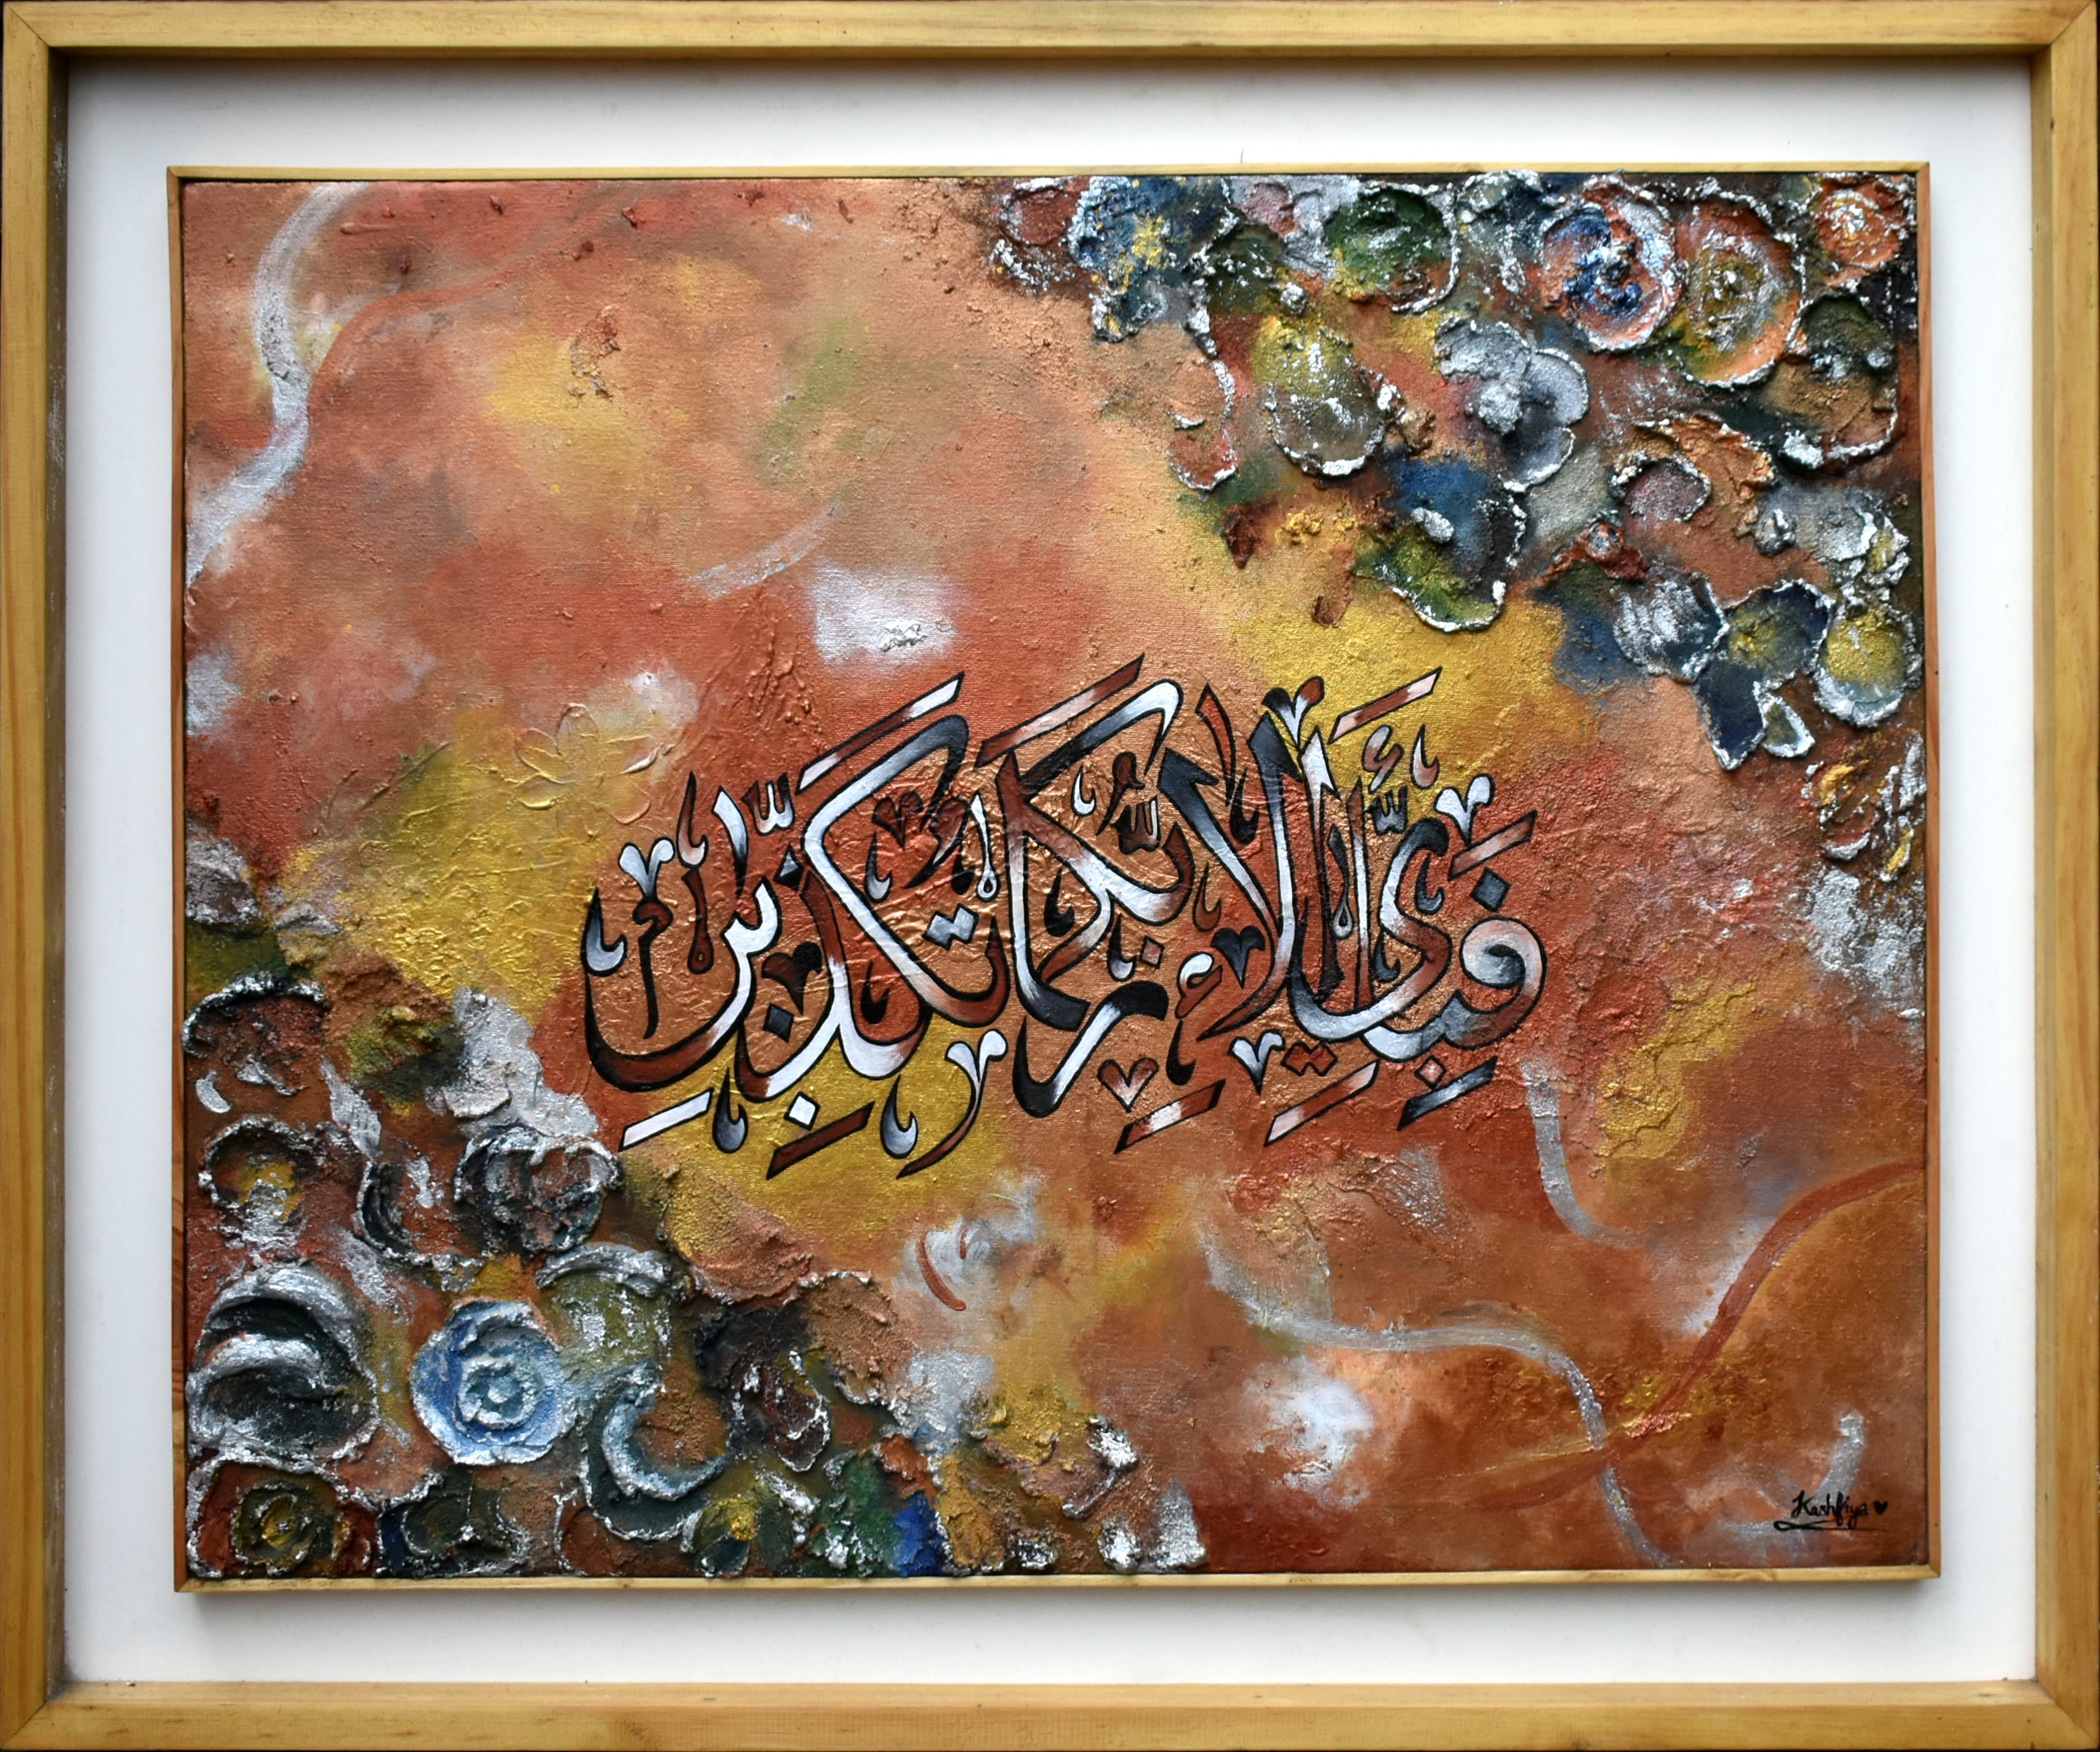 فَبِأَيِّ آلَاءِ رَبِّكُمَا تُكَذِّبَانِ
Kashfiya